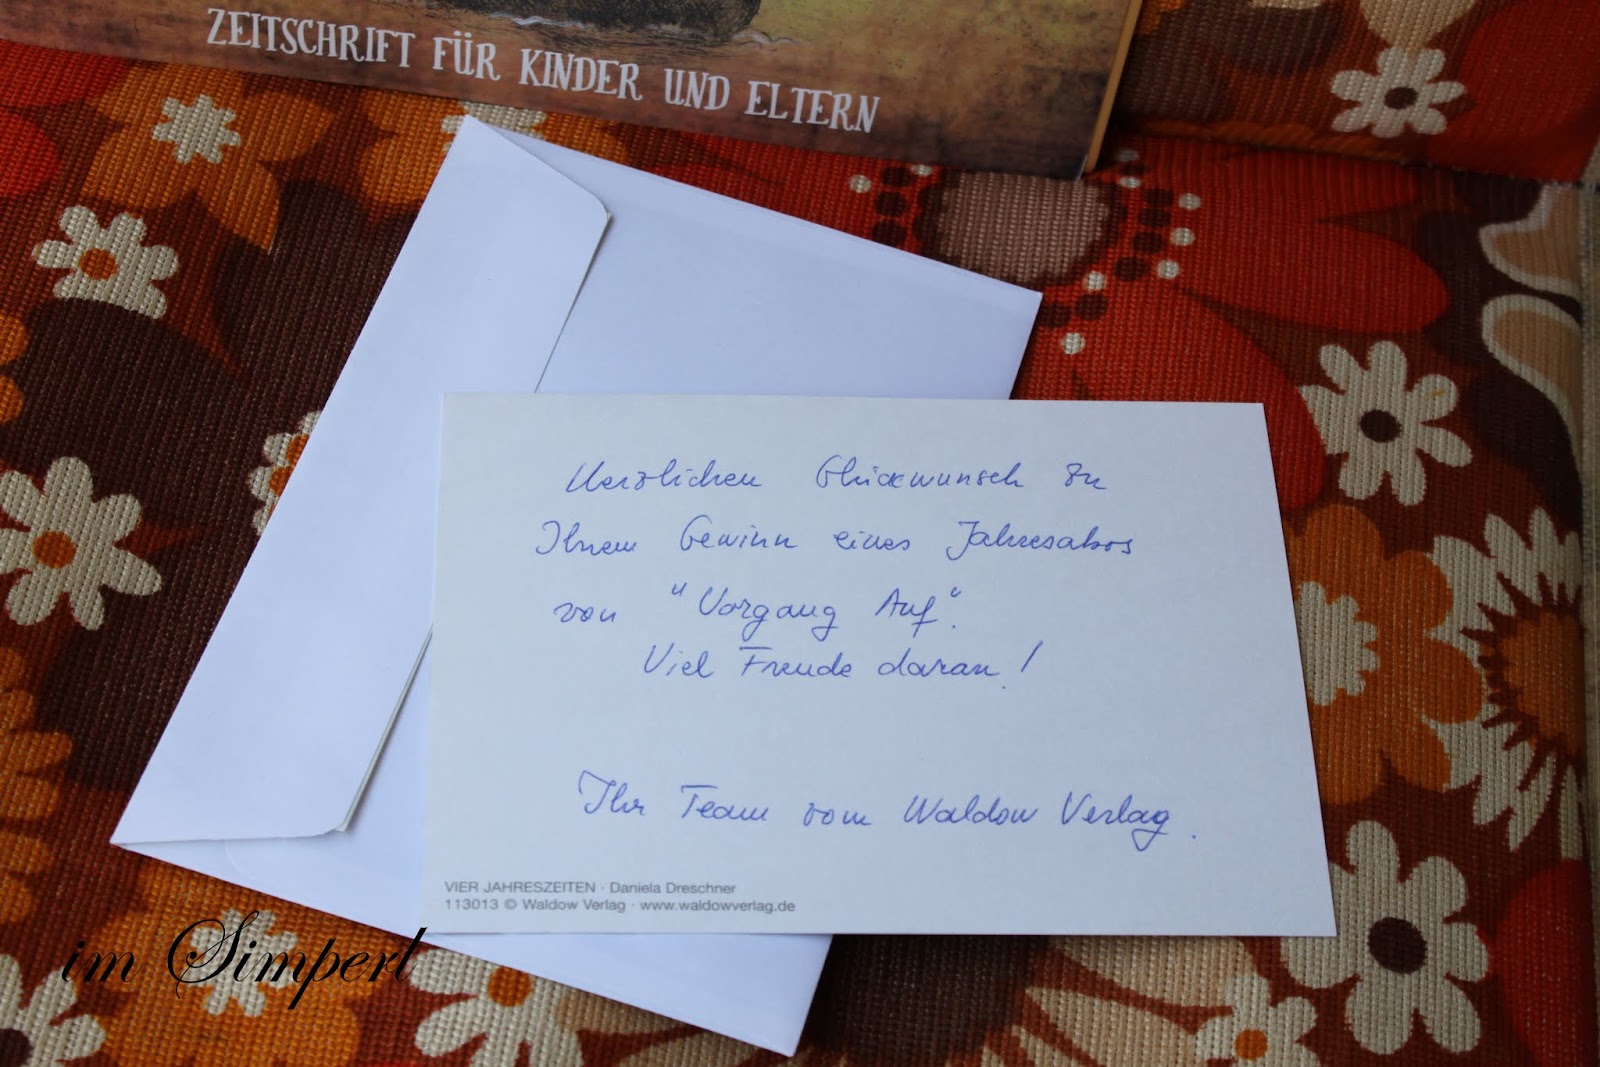 ZEITSCHRIFT FÜR KINDER UND ELTERN
Herzlichen Glückwunsch zu
Ihrem Gewinn eines Jahresabos
von "Vorgang Auf".
Viel Freude daran!
Ihr Team vom Waldow Verlag.
VIER JAHRESZEITEN · Daniela Dreschner
113013 © Waldow Verlag · www.waldowverlag.de
im Simperl